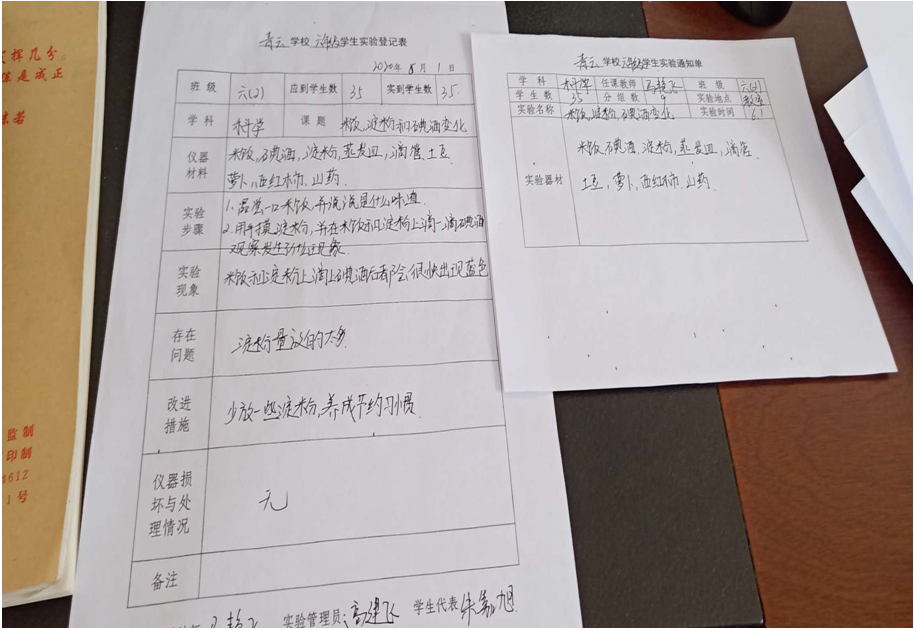 发挥几分。
是成正
若
监制
印制
4612
1号
青云 学校 六年级 学生实验登记表
2020年 8 月 1 日
班级 六(2) 应到学生数 35 实到学生数 35.
学科 科学 课题 米饭,淀粉和碘酒变化
仪器材料
米饭,碘酒,淀粉,蒸发皿,滴管,土豆
萝卜,西红柿,山药.
实验步骤
1.品尝一口米饭,并说说是什么味道.
2.用手摸淀粉,并在米饭和淀粉上滴一滴碘酒
观察发生了什么现象
实验现象
米饭和淀粉上滴上碘酒后都会很快出现蓝色
存在问题
淀粉量放的太多.
改进措施
少放一些淀粉,养成节约习惯.
仪器损坏与处理情况
无
备注
实验管理员: 高建飞 学生代表
青云 学校 学生实验通知单
学科 科学 任课教师 班级 六(2)
学生数 35 分组数 9 实验地点 教室
实验名称 米饭,淀粉,碘酒变化 实验时间 6.1
实验器材
米饭,碘酒,淀粉,蒸发皿,滴管.
土豆,萝卜,西红柿,山药.